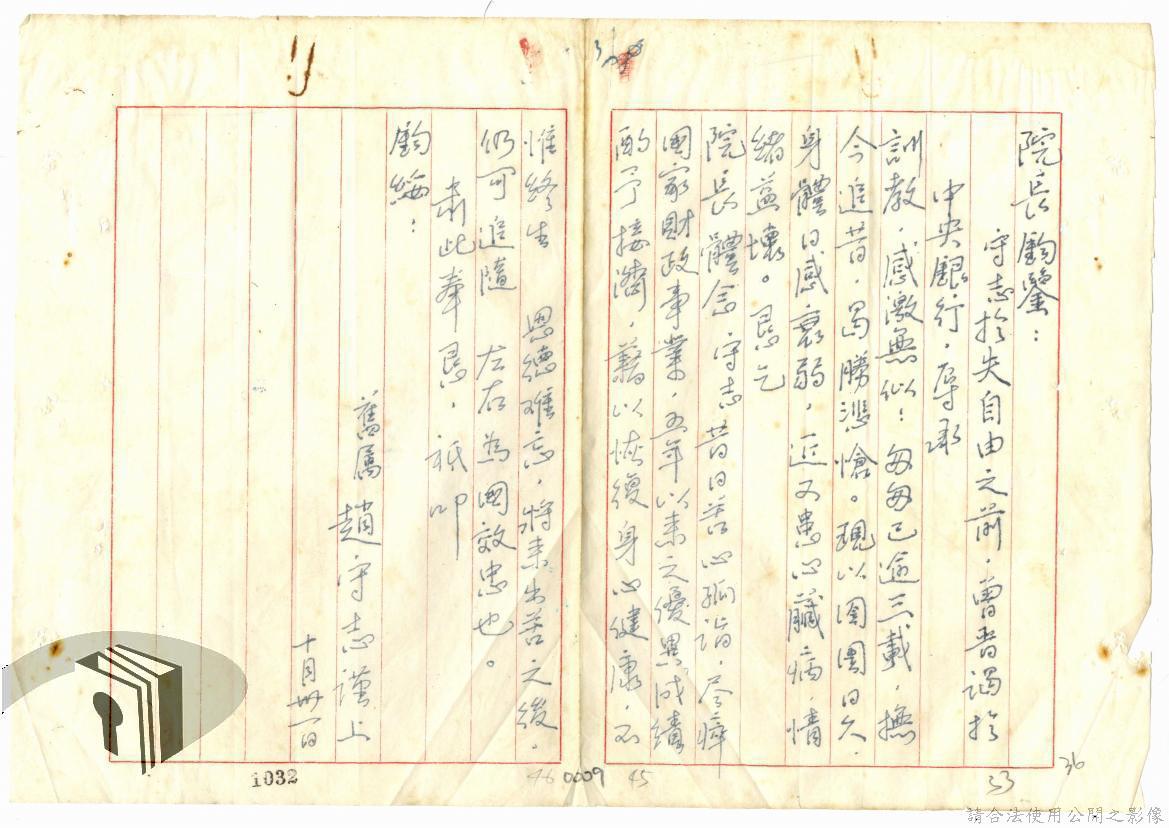 院長鈞鑒：
守志於失自由之前，曾晉謁於
中央銀行，辱承
訓教，感激無似！匆匆已逾三載，撫
今追昔，曷勝悲愴。現以囹圄日久，
身體日感衰弱，近又患心臟病，情
緒益壞。懇乞
院長體念 守志昔日苦心孤詣，尽瘁
國家財政事業，五年以來之優異成績
酌予接濟，藉以恢復身心健康，不
惟終生 恩德難忘，將來出苦之後，
仍可追隨 左右為國效忠也。
肅此奉懇，祇叩
鈞綏：
舊屬 趙守志謹上
十月卅一日
1032
46 0009 45
33
36
請合法使用公開之影像